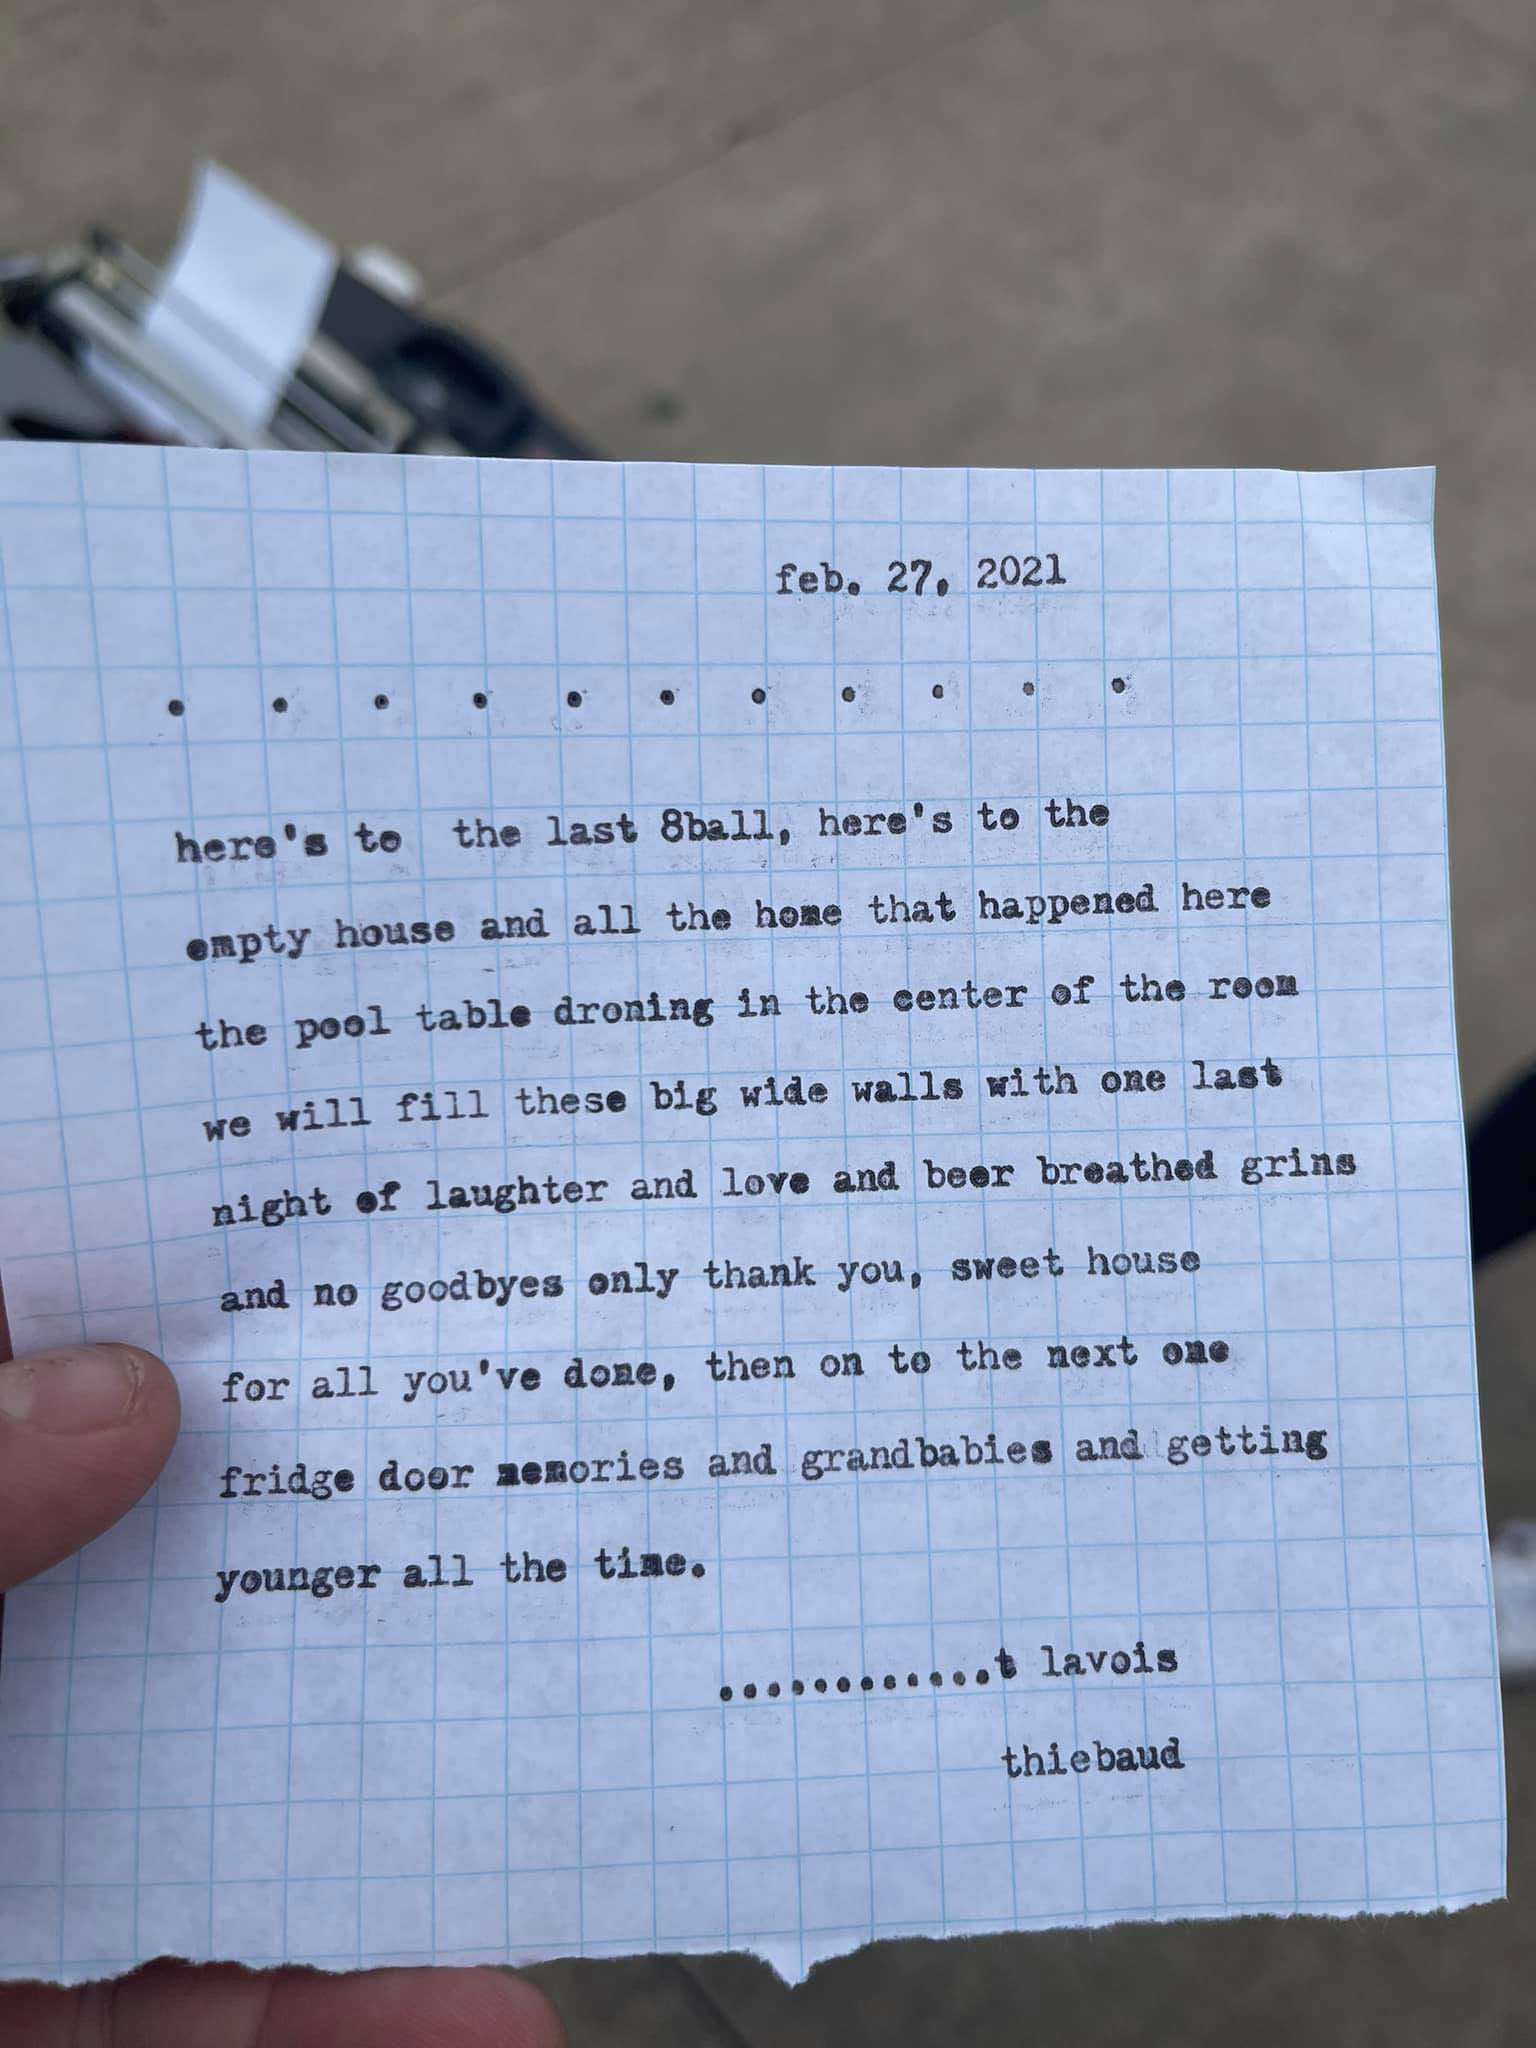 feb. 27, 2021
. . . . . . . . . . .
here's to  the last 8ball, here's to the
empty house and all the home that happened here
the pool table droning in the center of the room
we will fill these big wide walls with one last
night of laughter and love and beer breathed grins
and no goodbyes only thank you, sweet house
for all you've done, then on to the next one
fridge door memories and grandbabies and getting
younger all the time.
............t lavois
thiebaud